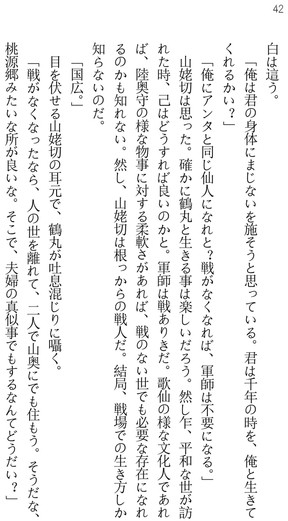 42
白は這う。
「俺は君の身体にまじないを施そうと思っている。君は千年の時を、俺と生きて
くれるかい？」
「俺にアンタと同じ仙人になれと？戦がなくなれば、軍師は不要になる。」
山姥切は思った。確かに鶴丸と生きる事は楽しいだろう。然し乍、平和な世が訪
れた時、己はどうすれば良いのかと。軍師は戦ありきだ。歌仙の様な文化人であれ
ば、陸奥守の様な物事に対する柔軟さがあれば、戦のない世でも必要な存在になれ
るのかも知れない。然し、山姥切は根っからの戦人だ。結局、戦場での生き方しか
知らないのだ。
「国広。」
目を伏せる山姥切の耳元で、鶴丸が吐息混じりに囁く。
「戦がなくなったなら、人の世を離れて、二人で山奥にでも住もう。そうだな、
桃源郷みたいな所が良いな。そこで、夫婦の真似事でもするなんてどうだい？」